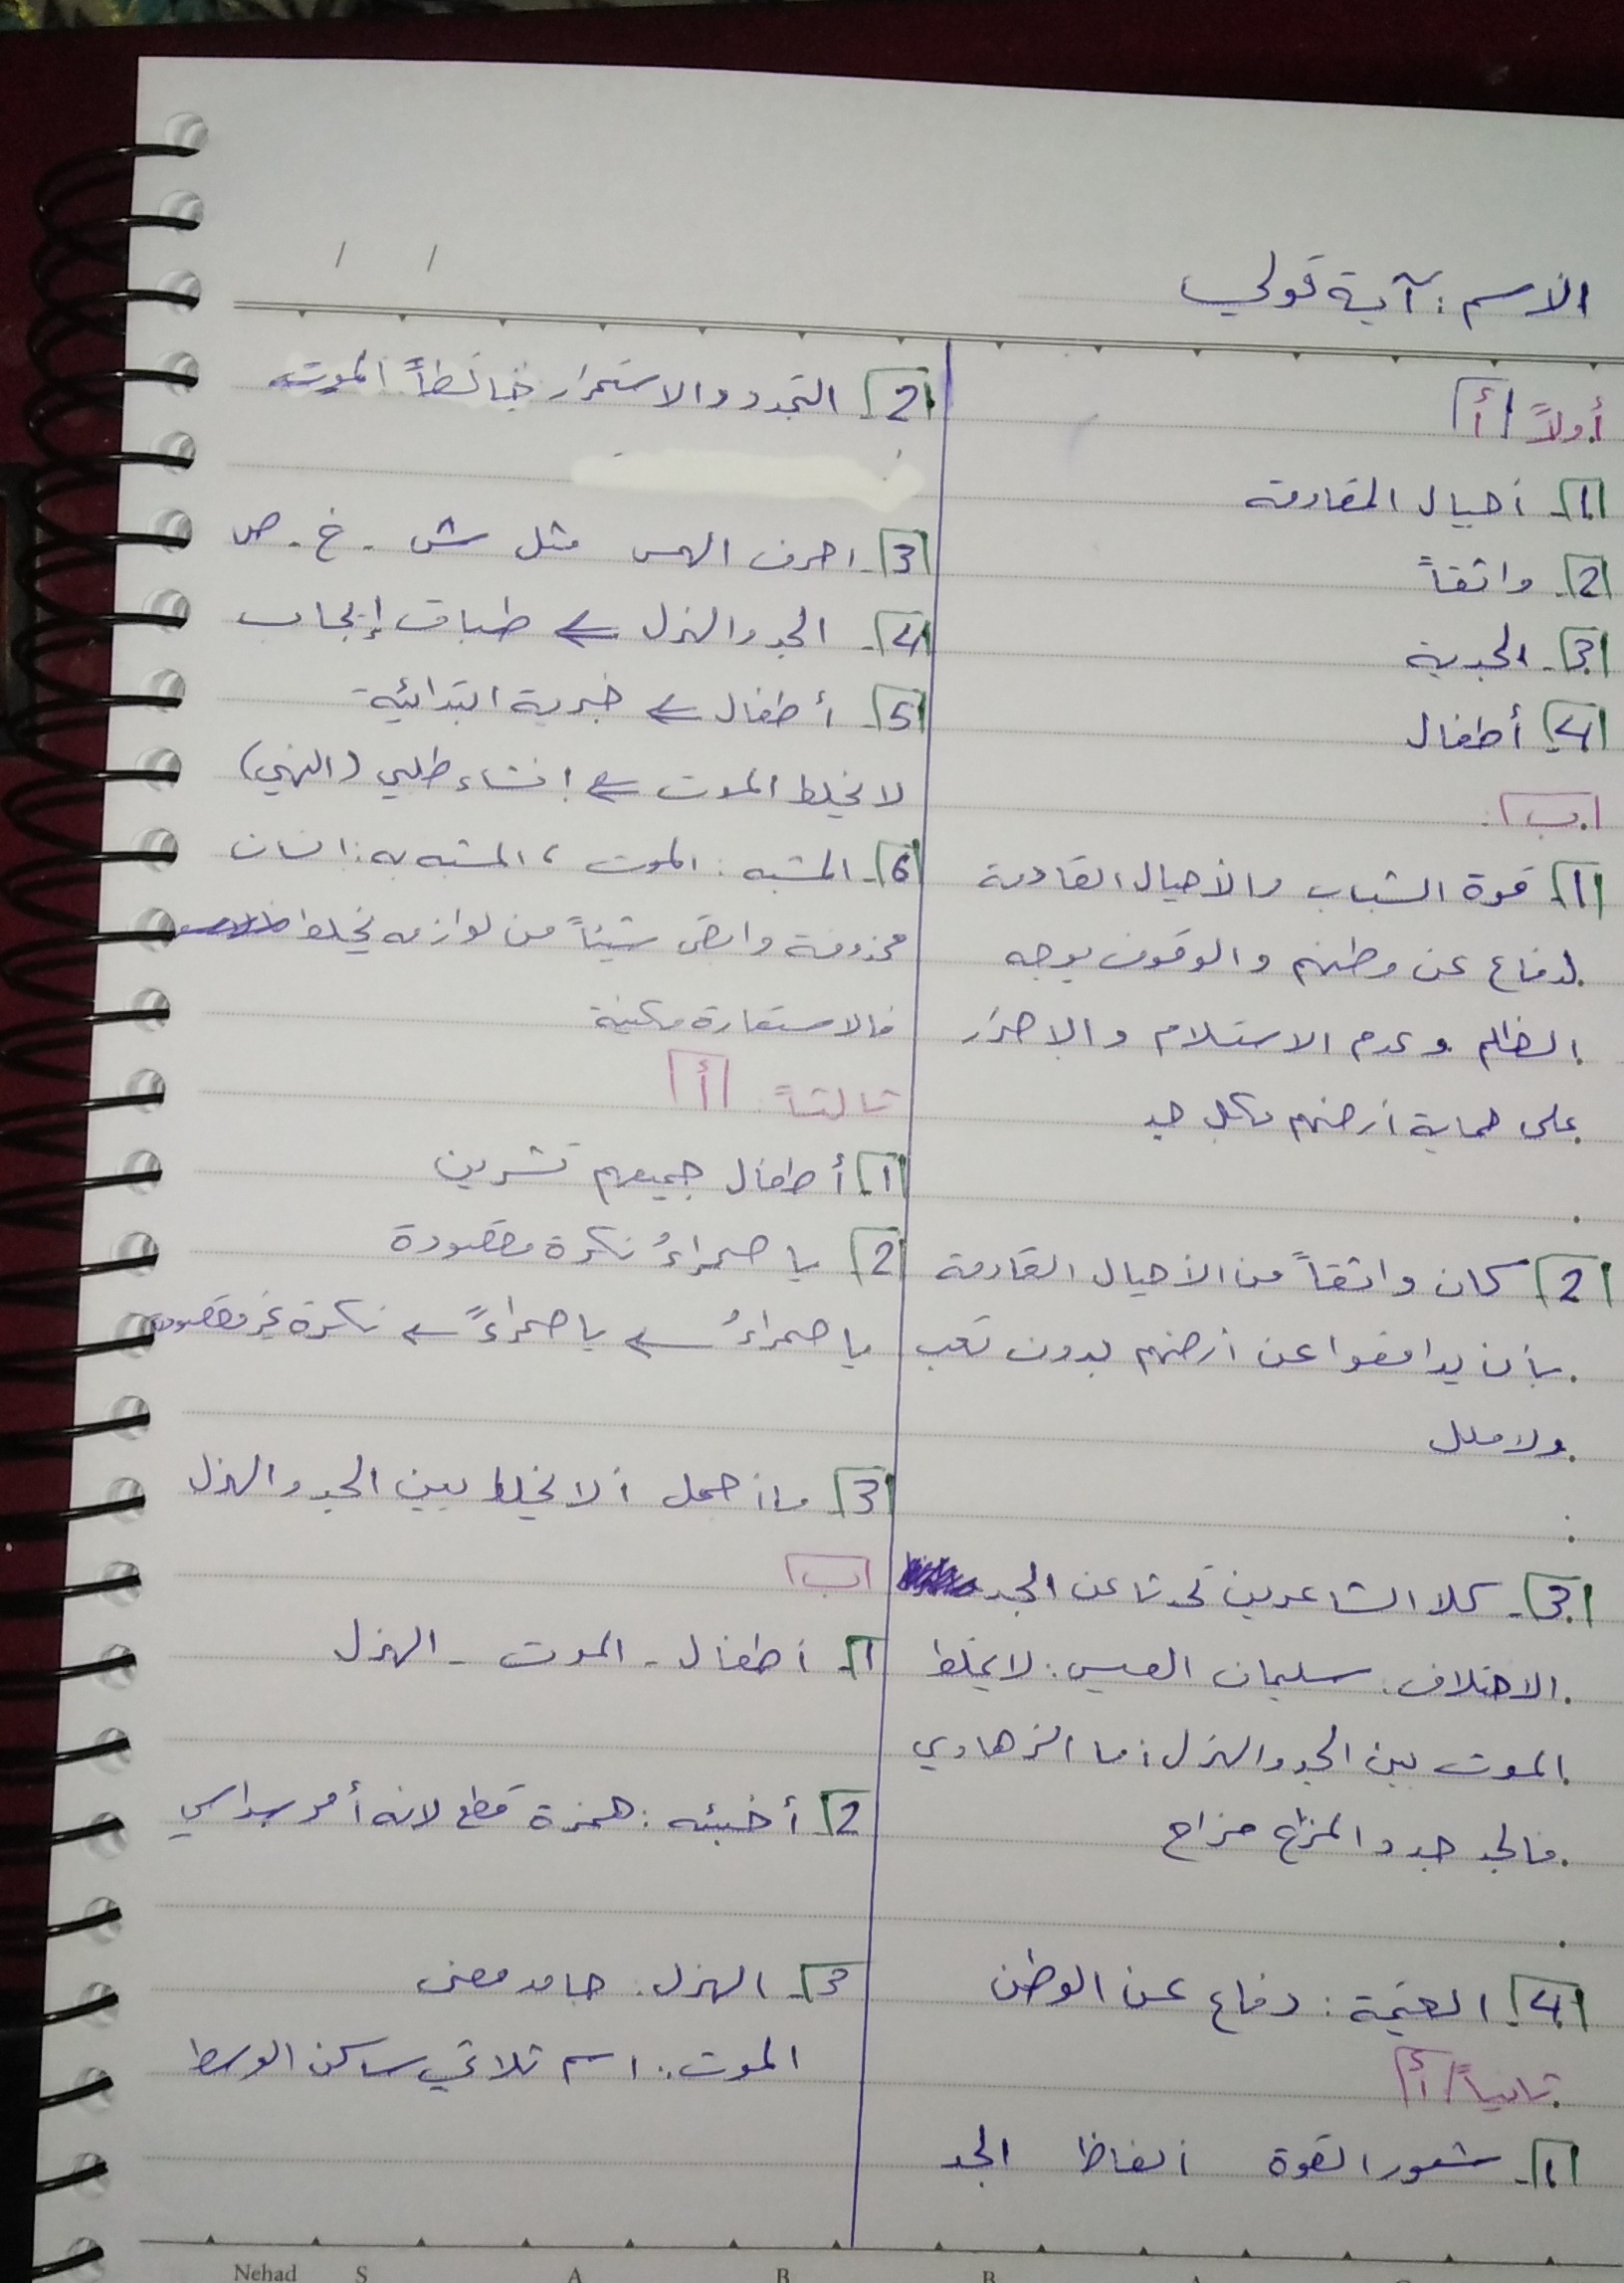 الاسم: آية قولي
أولاً / أ
1- أجيال المقاومة
2- واثقاً
3- الجدية
4- أطفال
ب
1- قوة الشباب والأجيال القادمة
لدفاع عن وطنهم والوقوف بوجه
الظلم وعدم الاستلام والاصرار
على حماية أرضهم بكل جد
2- كان واثقاً من الأجيال القادمة
بأن يدافعوا عن أرضهم بدون تعب
ولا ملل
3- كلا الشاعرين تحدثا عن الجد
الاختلاف: سليمان العيسى: لا يخلط
الموت بين الجد والهزل أما الزهاوي
فالجد جد والمزاح مزاح
4- القيمة: دفاع عن الوطن
ثانياً / أ
1- شعور القوة ألفاظ الجد
2- التجدد والاستمرار الموت
3- احرف الهمس مثل ش - خ - ص
4- الجد والهزل ← طباق إيجاب
5- أطفال ← خبرية ابتدائية
لا يخلط الموت ← إنشاء طلبي (النهي)
6- المشبه: الموت، المشبه به: انسان
محذوفة وابقى شيئاً من لوازمه يخلط
فالاستعارة مكنية
ثالثاً: أ
1- أطفال جميعهم تشرين
2- يا صحراءُ نكرة مقصودة
يا صحراءُ ← يا صحراءً ← نكرة غير مقصودة
3- ما أجمل ألا يخلط بين الجد والهزل
ب
1- أطفال - الموت - الهزل
2- أخبئه: همزة قطع لانه أمر
3- الهزل: جامد معنى
الموت: اسم ثلاثي ساكن الوسط
Nehad S A B B